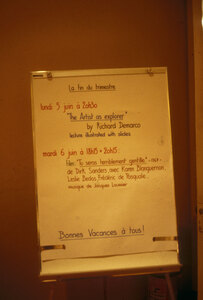 La fin du trimestre
lundi 5 juin à 20h30
"The Artist as explorer"
by Richard Demarco
lecture illustrated with slides
mardi 6 juin à 18h15 + 20h15
film: "Tu seras terriblement gentille"
de Dirk Sanders avec Karen Blanguernon,
Leslie Bedos, Frédéric de Pasquale
musique de Jacques Loussier
Bonnes Vacances à tous!